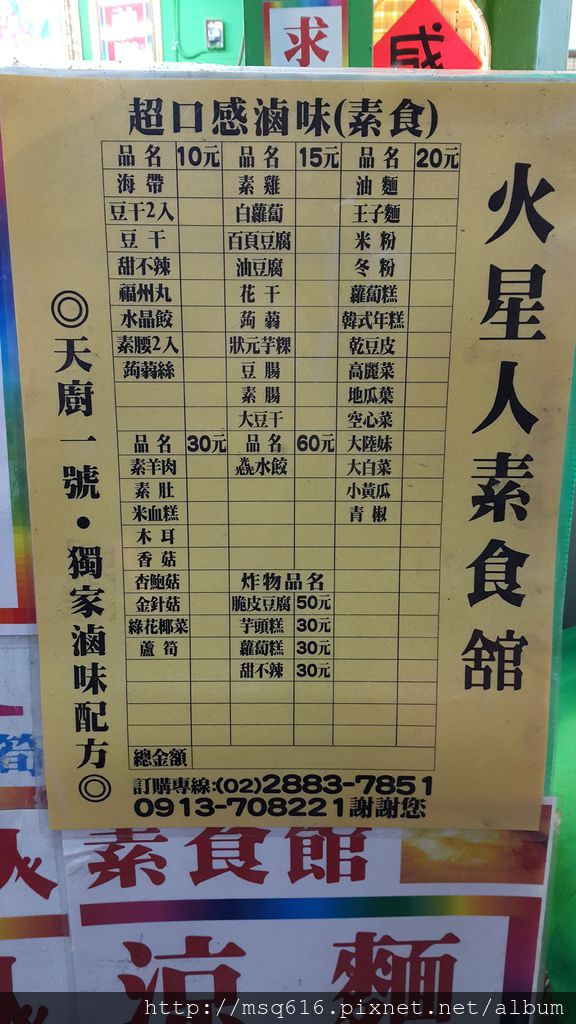 求
感
超口感滷味(素食)
品名 10元 品名 15元 品名 20元
海帶 素雞 油麵
豆干2入 白蘿蔔 王子麵
豆干 百頁豆腐 米粉
甜不辣 油豆腐 冬粉
福州丸 花干 蘿蔔糕
水晶餃 蒟蒻 韓式年糕
素腰2入 狀元芋粿 乾豆皮
蒟蒻絲 豆腸 高麗菜
素腸 地瓜葉
大豆干 空心菜
品名 30元 品名 60元 大陸妹
素羊肉 水餃 大白菜
素肚 小黃瓜
米血糕 青椒
木耳
香菇
杏鮑菇 炸物品名
金針菇 脆皮豆腐 50元
綠花椰菜 芋頭糕 30元
蘆筍 蘿蔔糕 30元
甜不辣 30元
總金額
訂購專線:(02)2883-7851
0913-708221謝謝您
火星人素食館
◎天廚一號•獨家滷味配方◎
筍
人素食館
涼麵
http://msq616.pixnet.net/album